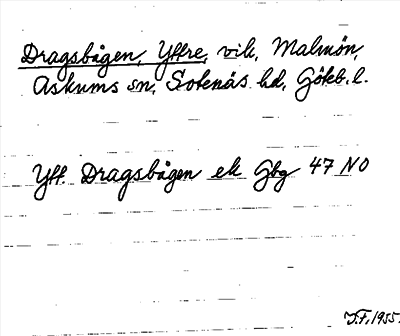 Dragsbågen, Yttre, vik, Malmön,
Askums sn, Sotenäs hd, Göteb. l.
Ytt. Dragsbågen ek Gbg 47 NO
J.F. 1955.